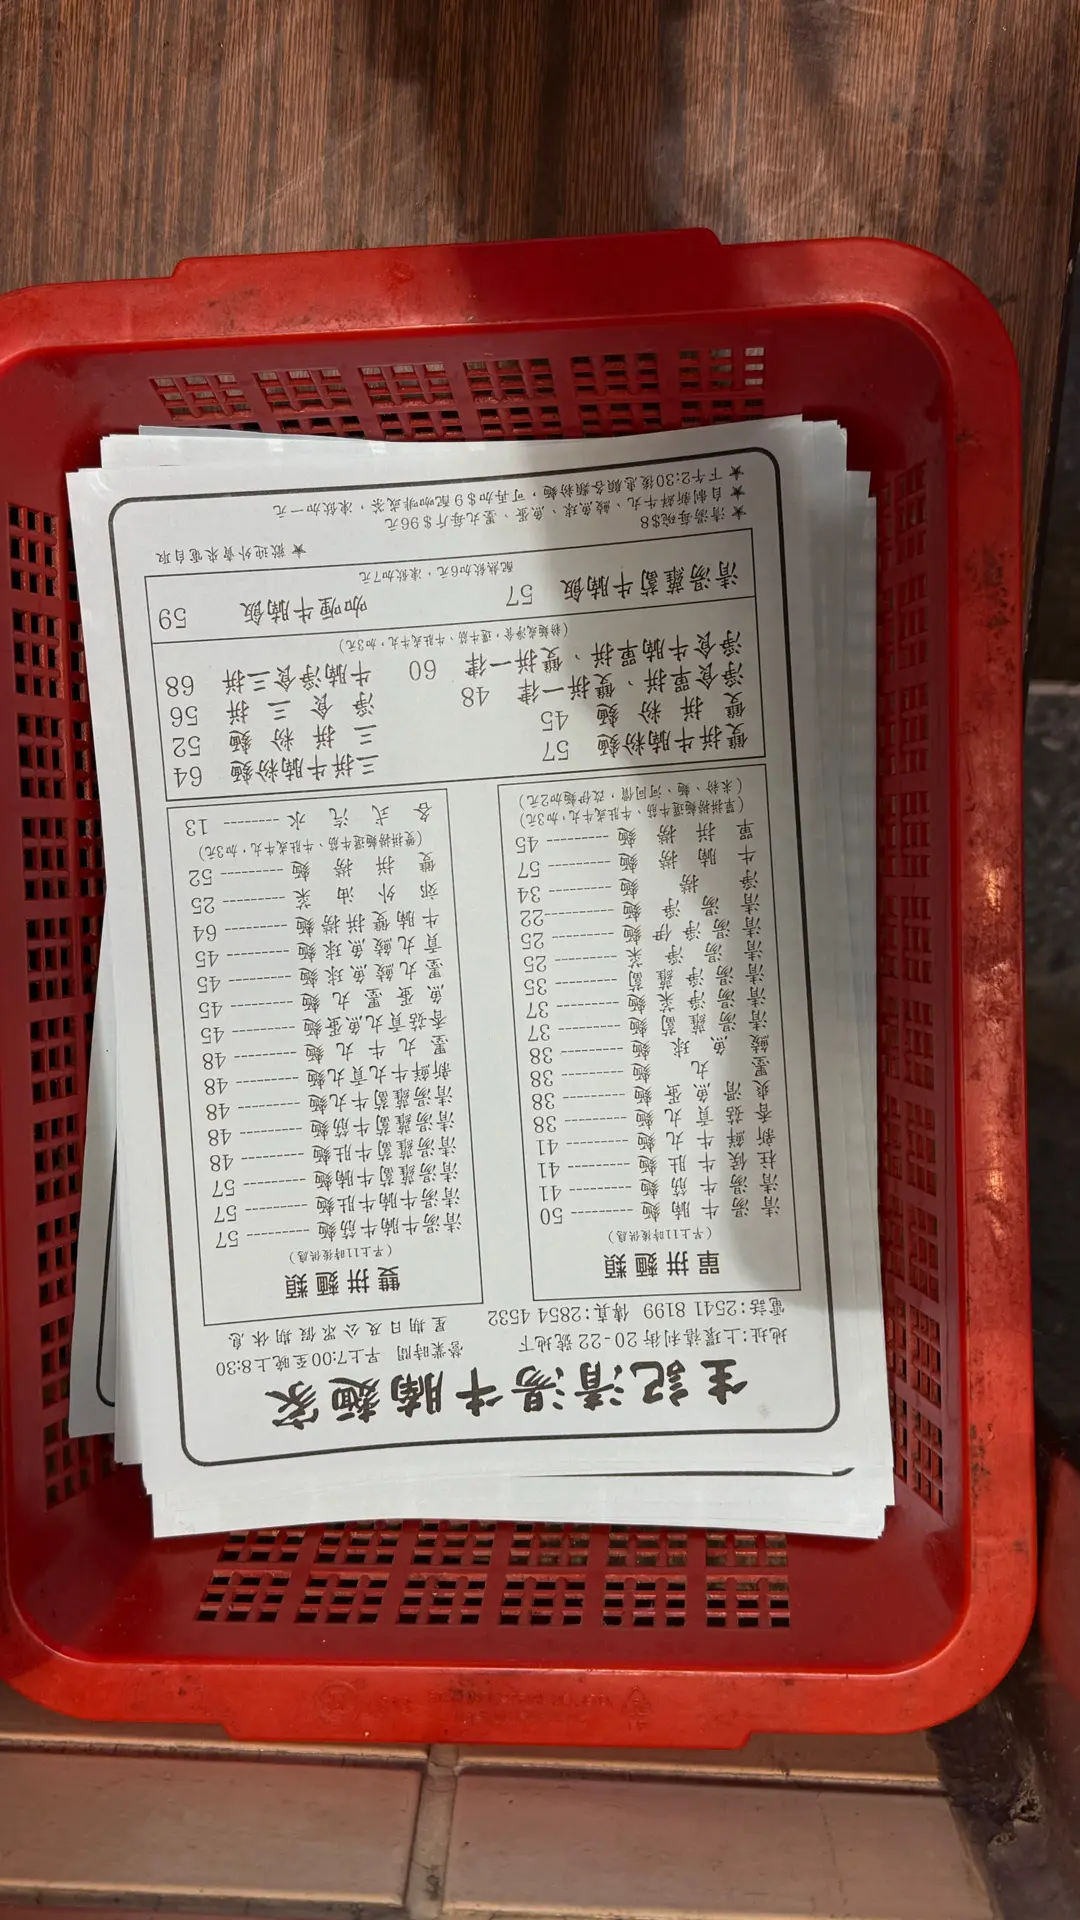 生記清湯牛腩麵家
地址:上環禧利街20-22號地下 營業時間 早上7:00至晚上8:30
電話:2541 8199 傳真:2854 4532 星期日及公眾假期休息
單拼麵類
(早上11時後供應)
清湯牛腩麵 --------- 50
清湯牛筋麵 --------- 41
柱候牛肚麵 --------- 41
新鮮牛丸麵 --------- 41
香菇貢丸麵 --------- 38
爽滑魚蛋麵 --------- 38
墨丸麵 --------- 38
鯪魚球麵 --------- 38
清湯蘿蔔麵 --------- 37
清湯淨菜麵 --------- 37
清湯淨蘿蔔 --------- 35
清湯淨菜 --------- 25
清湯淨伊麵 --------- 25
清湯淨麵 --------- 22
淨撈麵 --------- 34
牛腩撈麵 --------- 57
單拼撈麵 --------- 45
(單拼撈麵選牛筋、牛肚或牛丸,加3元)
(米粉、麵、河同價,改伊麵加2元)
雙拼麵類
(早上11時後供應)
清湯牛腩牛筋麵 --------- 57
清湯牛腩牛肚麵 --------- 57
清湯蘿蔔牛腩麵 --------- 57
清湯蘿蔔牛肚麵 --------- 48
清湯蘿蔔牛筋麵 --------- 48
清湯蘿蔔牛丸麵 --------- 48
新鮮牛丸貢丸麵 --------- 48
墨丸牛丸麵 --------- 48
香菇貢丸魚蛋麵 --------- 45
魚蛋墨丸麵 --------- 45
墨丸鯪魚球麵 --------- 45
貢丸鯪魚球麵 --------- 45
牛腩雙拼撈麵 --------- 64
郊外油菜 --------- 25
雙拼撈麵 --------- 52
(雙拼撈麵選牛筋、牛肚或牛丸,加3元)
各式汽水 --------- 13
雙拼牛腩粉麵 57 三拼牛腩粉麵 64
雙拼粉麵 45 三拼粉麵 52
淨食單拼、雙拼一律 48 淨食三拼 56
淨食牛腩單拼、雙拼一律 60 牛腩淨食三拼 68
(粉麵或淨食,選牛筋、牛肚或牛丸,加3元)
清湯蘿蔔牛腩飯 57 咖喱牛腩飯 59
配熱飲加6元,凍飲加7元
★ 清湯每碗$8 ★ 歡迎外賣來電自取
★ 自制新鮮牛丸、鯪魚球、魚蛋、墨丸每斤$96元
★ 下午2:30後惠顧各類粉麵,可再加$9配咖啡或茶,凍飲加一元